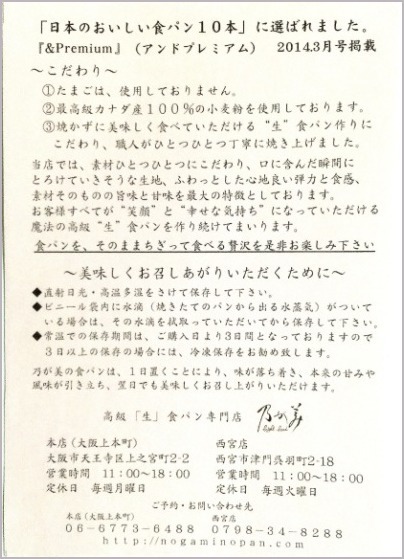 「日本のおいしい食パン１０本」に選ばれました。
『&Premium』（アンドプレミアム）　2014.3月号掲載
～こだわり～
①たまごは、使用しておりません。
②最高級カナダ産１００％の小麦粉を使用しております。
③焼かずに美味しく食べていただける“生”食パン作りに
こだわり、職人がひとつひとつ丁寧に焼き上げました。
当店では、素材ひとつひとつにこだわり、口に含んだ瞬間に
とろけていきそうな生地、ふわっとした心地良い弾力と食感、
素材そのものの旨味と甘味を最大の特徴としております。
お客様すべてが“笑顔”と“幸せな気持ち”になっていただける
魔法の高級“生”食パンを作り続けてまいります。
食パンを、そのままちぎって食べる贅沢を是非お楽しみ下さい
～美味しくお召しあがりいただくために～
◆直射日光・高温多湿をさけて保存して下さい。
◆ビニール袋内に水滴（焼きたてのパンから出る水蒸気）がついて
いる場合は、その水滴を拭取っていただいてから保存して下さい。
◆常温での保存期間は、ご購入日より３日間となっておりますので
３日以上の保存の場合には、冷凍保存をお勧め致します。
乃が美の食パンは、１日置くことにより、味が落ち着き、本来の甘みや
風味が引き立ち、翌日でも美味しくお召し上がりいただけます。
高級「生」食パン専門店　乃が美
本店（大阪上本町）　西宮店
大阪市天王寺区上之宮町2-2　西宮市津門呉羽町2-18
営業時間　11:00～18:00　営業時間　11:00～18:00
定休日　毎週月曜日　定休日　毎週火曜日
ご予約・お問い合わせ先
本店（大阪上本町）　西宮店
06-6773-6488　0798-34-8288
http://nogaminopan.com